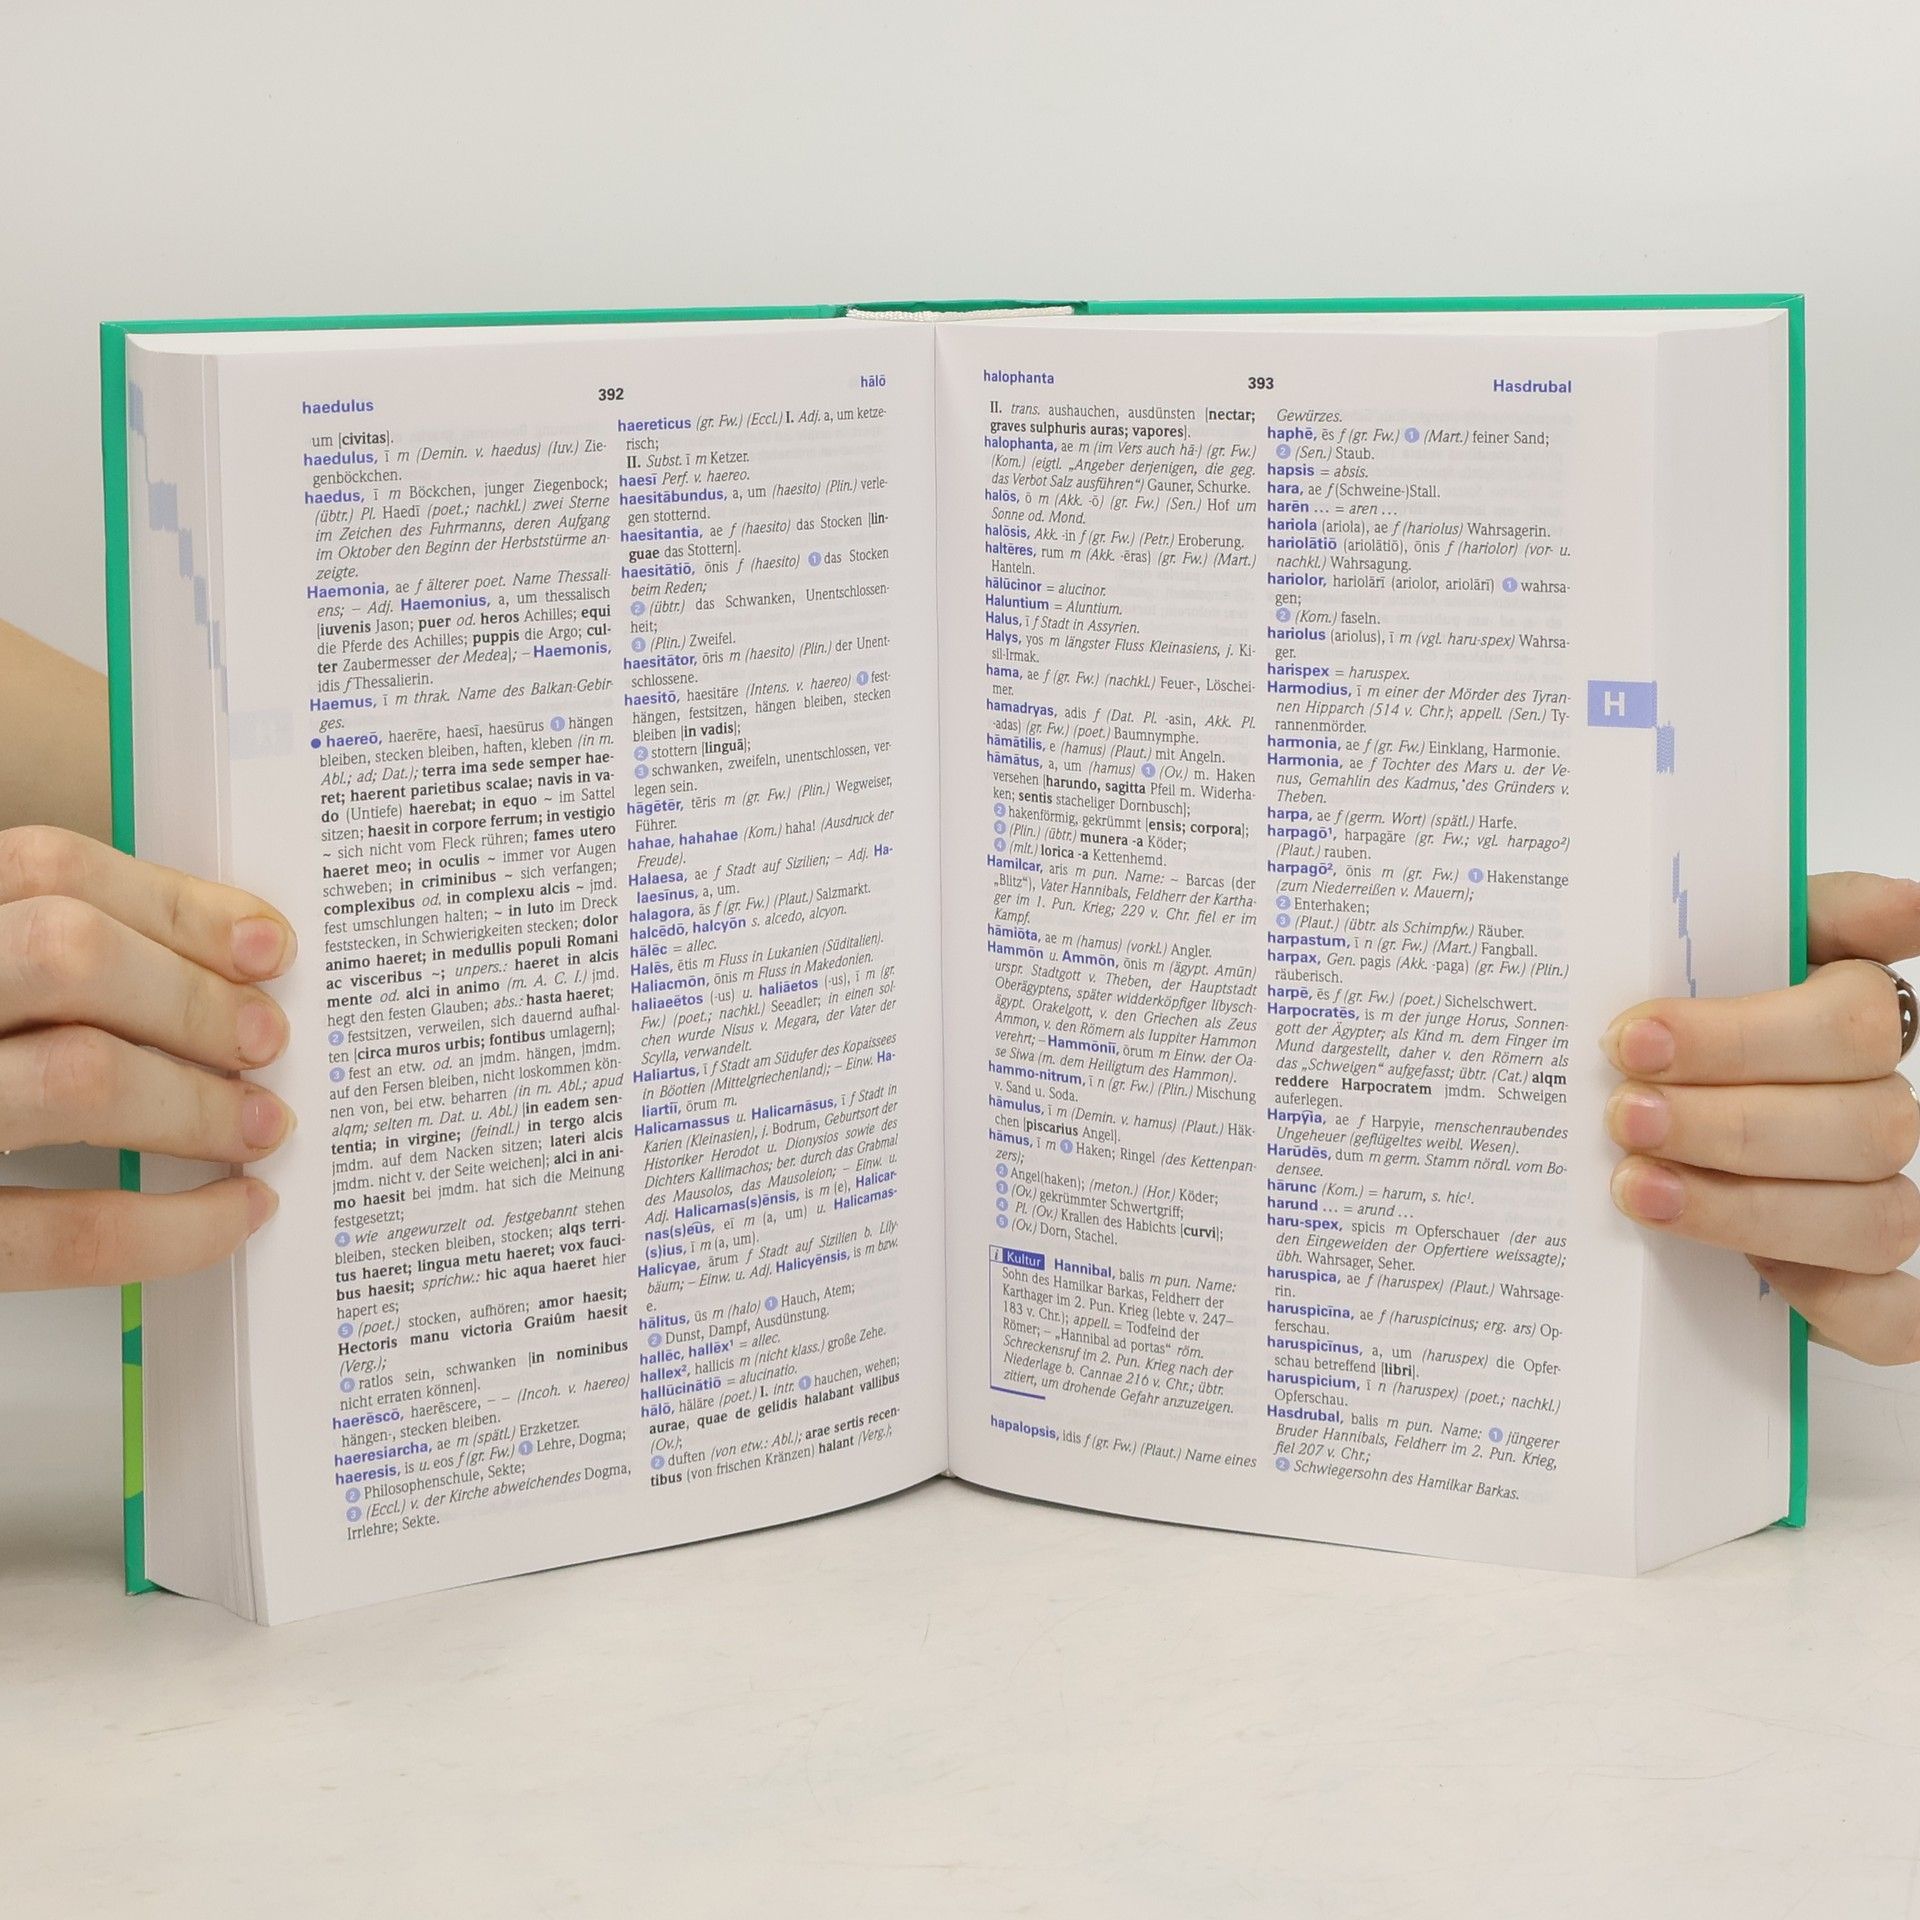 haedulus
392
hālō
um [civitas].
haedulus, ī m (Demin. v. haedus) (Iuv.) Zie-
genböckchen.
haedus, ī m Böckchen, junger Ziegenbock;
(übtr.) Pl. Haedī (poet.; nachkl.) zwei Sterne
im Zeichen des Fuhrmanns, deren Aufgang
im Oktober den Beginn der Herbststürme an-
zeigte.
Haemonia, ae f älterer poet. Name Thessali-
ens; – Adj. Haemonius, a, um thessalisch
[iuvenis Jason; puer od. heros Achilles; equi
die Pferde des Achilles; puppis die Argo; cul-
ter Zaubermesser der Medea]; – Haemonis,
idis f Thessalierin.
Haemus, ī m thrak. Name des Balkan-Gebir-
ges.
● haereō, haerēre, haesī, haesūrus 1 hängen
bleiben, stecken bleiben, haften, kleben (in m.
Abl.; ad; Dat.); terra ima sede semper hae-
ret; haerent parietibus scalae; navis in va-
do (Untiefe) haerebat; in equo ~ im Sattel
sitzen; haesit in corpore ferrum; in vestigio
~ sich nicht vom Fleck rühren; fames utero
haeret meo; in oculis ~ immer vor Augen
schweben; in criminibus ~ sich verfangen;
complexibus od. in complexu alcis ~ jmd.
fest umschlungen halten; ~ in luto im Dreck
feststecken, in Schwierigkeiten stecken; dolor
animo haeret; in medullis populi Romani
ac visceribus ~; unpers.: haeret in alcis
mente od. alci in animo (m. A. C. I.) jmd.
hegt den festen Glauben; abs.: hasta haeret;
2 festsitzen, verweilen, sich dauernd aufhal-
ten [circa muros urbis; fontibus umlagern];
3 fest an etw. od. an jmdm. hängen, jmdm.
auf den Fersen bleiben, nicht loskommen kön-
nen von, bei etw. beharren (in m. Abl.; apud
alqm; selten m. Dat. u. Abl.) [in eadem sen-
tentia; in virgine; (feindl.) in tergo alcis
jmdm. auf dem Nacken sitzen; lateri alcis
jmdm. nicht v. der Seite weichen]; alci in ani-
mo haesit bei jmdm. hat sich die Meinung
festgesetzt;
4 wie angewurzelt od. festgebannt stehen
bleiben, stecken bleiben, stocken; alqs terri-
tus haeret; lingua metu haeret; vox fauci-
bus haesit; sprichw.: hic aqua haeret hier
hapert es;
5 (poet.) stocken, aufhören; amor haesit;
Hectoris manu victoria Graiûm haesit
(Verg.);
6 ratlos sein, schwanken [in nominibus
nicht erraten können].
haerēscō, haerēscere, – – (Incoh. v. haereo)
hängen-, stecken bleiben.
haeresiarcha, ae m (spätl.) Erzketzer.
haeresis, is u. eos f (gr. Fw.) 1 Lehre, Dogma;
2 Philosophenschule, Sekte;
3 (Eccl.) v. der Kirche abweichendes Dogma,
Irrlehre; Sekte.
haereticus (gr. Fw.) (Eccl.) I. Adj. a, um ketze-
risch;
II. Subst. ī m Ketzer.
haesī Perf. v. haereo.
haesitābundus, a, um (haesito) (Plin.) verle-
gen stotternd.
haesitantia, ae f (haesito) das Stocken [lin-
guae das Stottern].
haesitātiō, ōnis f (haesito) 1 das Stocken
beim Reden;
2 (übtr.) das Schwanken, Unentschlossen-
heit;
3 (Plin.) Zweifel.
haesitātor, ōris m (haesito) (Plin.) der Unent-
schlossene.
haesitō, haesitāre (Intens. v. haereo) 1 fest-
hängen, festsitzen, hängen bleiben, stecken
bleiben [in vadis];
2 stottern [linguā];
3 schwanken, zweifeln, unentschlossen, ver-
legen sein.
hāgētēr, tēris m (gr. Fw.) (Plin.) Wegweiser,
Führer.
hahae, hahahae (Kom.) haha! (Ausdruck der
Freude).
Halaesa, ae f Stadt auf Sizilien; – Adj. Ha-
laesīnus, a, um.
halagora, ās f (gr. Fw.) (Plaut.) Salzmarkt.
halcēdō, halcyōn s. alcedo, alcyon.
hālēc = allec.
Halēs, ētis m Fluss in Lukanien (Süditalien).
Haliacmōn, ōnis m Fluss in Makedonien.
haliaeëtos (-us) u. haliāetos (-us), ī m (gr.
Fw.) (poet.; nachkl.) Seeadler; in einen sol-
chen wurde Nisus v. Megara, der Vater der
Scylla, verwandelt.
Haliartus, ī f Stadt am Südufer des Kopaissees
in Böotien (Mittelgriechenland); – Einw. Ha-
liartiī, ōrum m.
Halicarnassus u. Halicarnāsus, ī f Stadt in
Karien (Kleinasien), j. Bodrum, Geburtsort der
Historiker Herodot u. Dionysios sowie des
Dichters Kallimachos; ber. durch das Grabmal
des Mausolos, das Mausoleion; – Einw. u.
Adj. Halicarnas(s)ēnsis, is m (e), Halicar-
nas(s)eūs, eī m (a, um) u. Halicarnas-
(s)ius, ī m (a, um).
Halicyae, ārum f Stadt auf Sizilien b. Lily-
bäum; – Einw. u. Adj. Halicyēnsis, is m bzw.
e.
hālitus, ūs m (halo) 1 Hauch, Atem;
2 Dunst, Dampf, Ausdünstung.
hallēc, hallēx¹ = allec.
hallex², hallicis m (nicht klass.) große Zehe.
hallūcinātiō = alucinatio.
hālō, hālāre (poet.) I. intr. 1 hauchen, wehen;
aurae, quae de gelidis halabant vallibus
(Ov.);
2 duften (von etw.: Abl.); arae sertis recen-
tibus (von frischen Kränzen) halant (Verg.);
halophanta
393
Hasdrubal
II. trans. aushauchen, ausdünsten [nectar;
graves sulphuris auras; vapores].
halophanta, ae m (im Vers auch hā-) (gr. Fw.)
(Kom.) (eigtl. „Angeber derjenigen, die geg.
das Verbot Salz ausführen“) Gauner, Schurke.
halōs, ō m (Akk. -ō) (gr. Fw.) (Sen.) Hof um
Sonne od. Mond.
halōsis, Akk. -in f (gr. Fw.) (Petr.) Eroberung.
haltēres, rum m (Akk. -ēras) (gr. Fw.) (Mart.)
Hanteln.
hālūcinor = alucinor.
Haluntium = Aluntium.
Halus, ī f Stadt in Assyrien.
Halys, yos m längster Fluss Kleinasiens, j. Ki-
sil-Irmak.
hama, ae f (gr. Fw.) (nachkl.) Feuer-, Löschei-
mer.
hamadryas, adis f (Dat. Pl. -asin, Akk. Pl.
-adas) (gr. Fw.) (poet.) Baumnymphe.
hāmātilis, e (hamus) (Plaut.) mit Angeln.
hāmātus, a, um (hamus) 1 (Ov.) m. Haken
versehen [harundo, sagitta Pfeil m. Widerha-
ken; sentis stacheliger Dornbusch];
2 hakenförmig, gekrümmt [ensis; corpora];
3 (Plin.) (übtr.) munera -a Köder;
4 (mlt.) lorica -a Kettenhemd.
Hamilcar, aris m pun. Name: ~ Barcas (der
„Blitz“), Vater Hannibals, Feldherr der Kartha-
ger im 1. Pun. Krieg; 229 v. Chr. fiel er im
Kampf.
hāmiōta, ae m (hamus) (vorkl.) Angler.
Hammōn u. Ammōn, ōnis m (ägypt. Amūn)
urspr. Stadtgott v. Theben, der Hauptstadt
Oberägyptens, später widderköpfiger libysch-
ägypt. Orakelgott, v. den Griechen als Zeus
Ammon, v. den Römern als Iuppiter Hammon
verehrt; – Hammōniī, ōrum m Einw. der Oa-
se Siwa (m. dem Heiligtum des Hammon).
hammo-nitrum, ī n (gr. Fw.) (Plin.) Mischung
v. Sand u. Soda.
hāmulus, ī m (Demin. v. hamus) (Plaut.) Häk-
chen [piscarius Angel].
hāmus, ī m 1 Haken; Ringel (des Kettenpan-
zers);
2 Angel(haken); (meton.) (Hor.) Köder;
3 (Ov.) gekrümmter Schwertgriff;
4 Pl. (Ov.) Krallen des Habichts [curvi];
5 (Ov.) Dorn, Stachel.
i Kultur Hannibal, balis m pun. Name:
Sohn des Hamilkar Barkas, Feldherr der
Karthager im 2. Pun. Krieg (lebte v. 247–
183 v. Chr.); appell. = Todfeind der
Römer; – „Hannibal ad portas“ röm.
Schreckensruf im 2. Pun. Krieg nach der
Niederlage b. Cannae 216 v. Chr.; übtr.
zitiert, um drohende Gefahr anzuzeigen.
hapalopsis, idis f (gr. Fw.) (Plaut.) Name eines
Gewürzes.
haphē, ēs f (gr. Fw.) 1 (Mart.) feiner Sand;
2 (Sen.) Staub.
hapsis = absis.
hara, ae f (Schweine-)Stall.
harēn ... = aren ...
hariola (ariola), ae f (hariolus) Wahrsagerin.
hariolātiō (ariolātiō), ōnis f (hariolor) (vor- u.
nachkl.) Wahrsagung.
hariolor, hariolārī (ariolor, ariolārī) 1 wahrsa-
gen;
2 (Kom.) faseln.
hariolus (ariolus), ī m (vgl. haru-spex) Wahrsa-
ger.
harispex = haruspex.
Harmodius, ī m einer der Mörder des Tyran-
nen Hipparch (514 v. Chr.); appell. (Sen.) Ty-
rannenmörder.
harmonia, ae f (gr. Fw.) Einklang, Harmonie.
Harmonia, ae f Tochter des Mars u. der Ve-
nus, Gemahlin des Kadmus, des Gründers v.
Theben.
harpa, ae f (germ. Wort) (spätl.) Harfe.
harpagō¹, harpagāre (gr. Fw.; vgl. harpago²)
(Plaut.) rauben.
harpagō², ōnis m (gr. Fw.) 1 Hakenstange
(zum Niederreißen v. Mauern);
2 Enterhaken;
3 (Plaut.) (übtr. als Schimpfw.) Räuber.
harpastum, ī n (gr. Fw.) (Mart.) Fangball.
harpax, Gen. pagis (Akk. -paga) (gr. Fw.) (Plin.)
räuberisch.
harpē, ēs f (gr. Fw.) (poet.) Sichelschwert.
Harpocratēs, is m der junge Horus, Sonnen-
gott der Ägypter; als Kind m. dem Finger im
Mund dargestellt, daher v. den Römern als
das „Schweigen“ aufgefasst; übtr. (Cat.) alqm
reddere Harpocratem jmdm. Schweigen
auferlegen.
Harpȳia, ae f Harpyie, menschenraubendes
Ungeheuer (geflügeltes weibl. Wesen).
Harūdēs, dum m germ. Stamm nördl. vom Bo-
densee.
hārunc (Kom.) = harum, s. hic¹.
harund ... = arund ...
haru-spex, spicis m Opferschauer (der aus
den Eingeweiden der Opfertiere weissagte);
übh. Wahrsager, Seher.
haruspica, ae f (haruspex) (Plaut.) Wahrsage-
rin.
haruspicīna, ae f (haruspicinus; erg. ars) Op-
ferschau.
haruspicīnus, a, um (haruspex) die Opfer-
schau betreffend [libri].
haruspicium, ī n (haruspex) (poet.; nachkl.)
Opferschau.
Hasdrubal, balis m pun. Name: 1 jüngerer
Bruder Hannibals, Feldherr im 2. Pun. Krieg,
fiel 207 v. Chr.;
2 Schwiegersohn des Hamilkar Barkas.
H